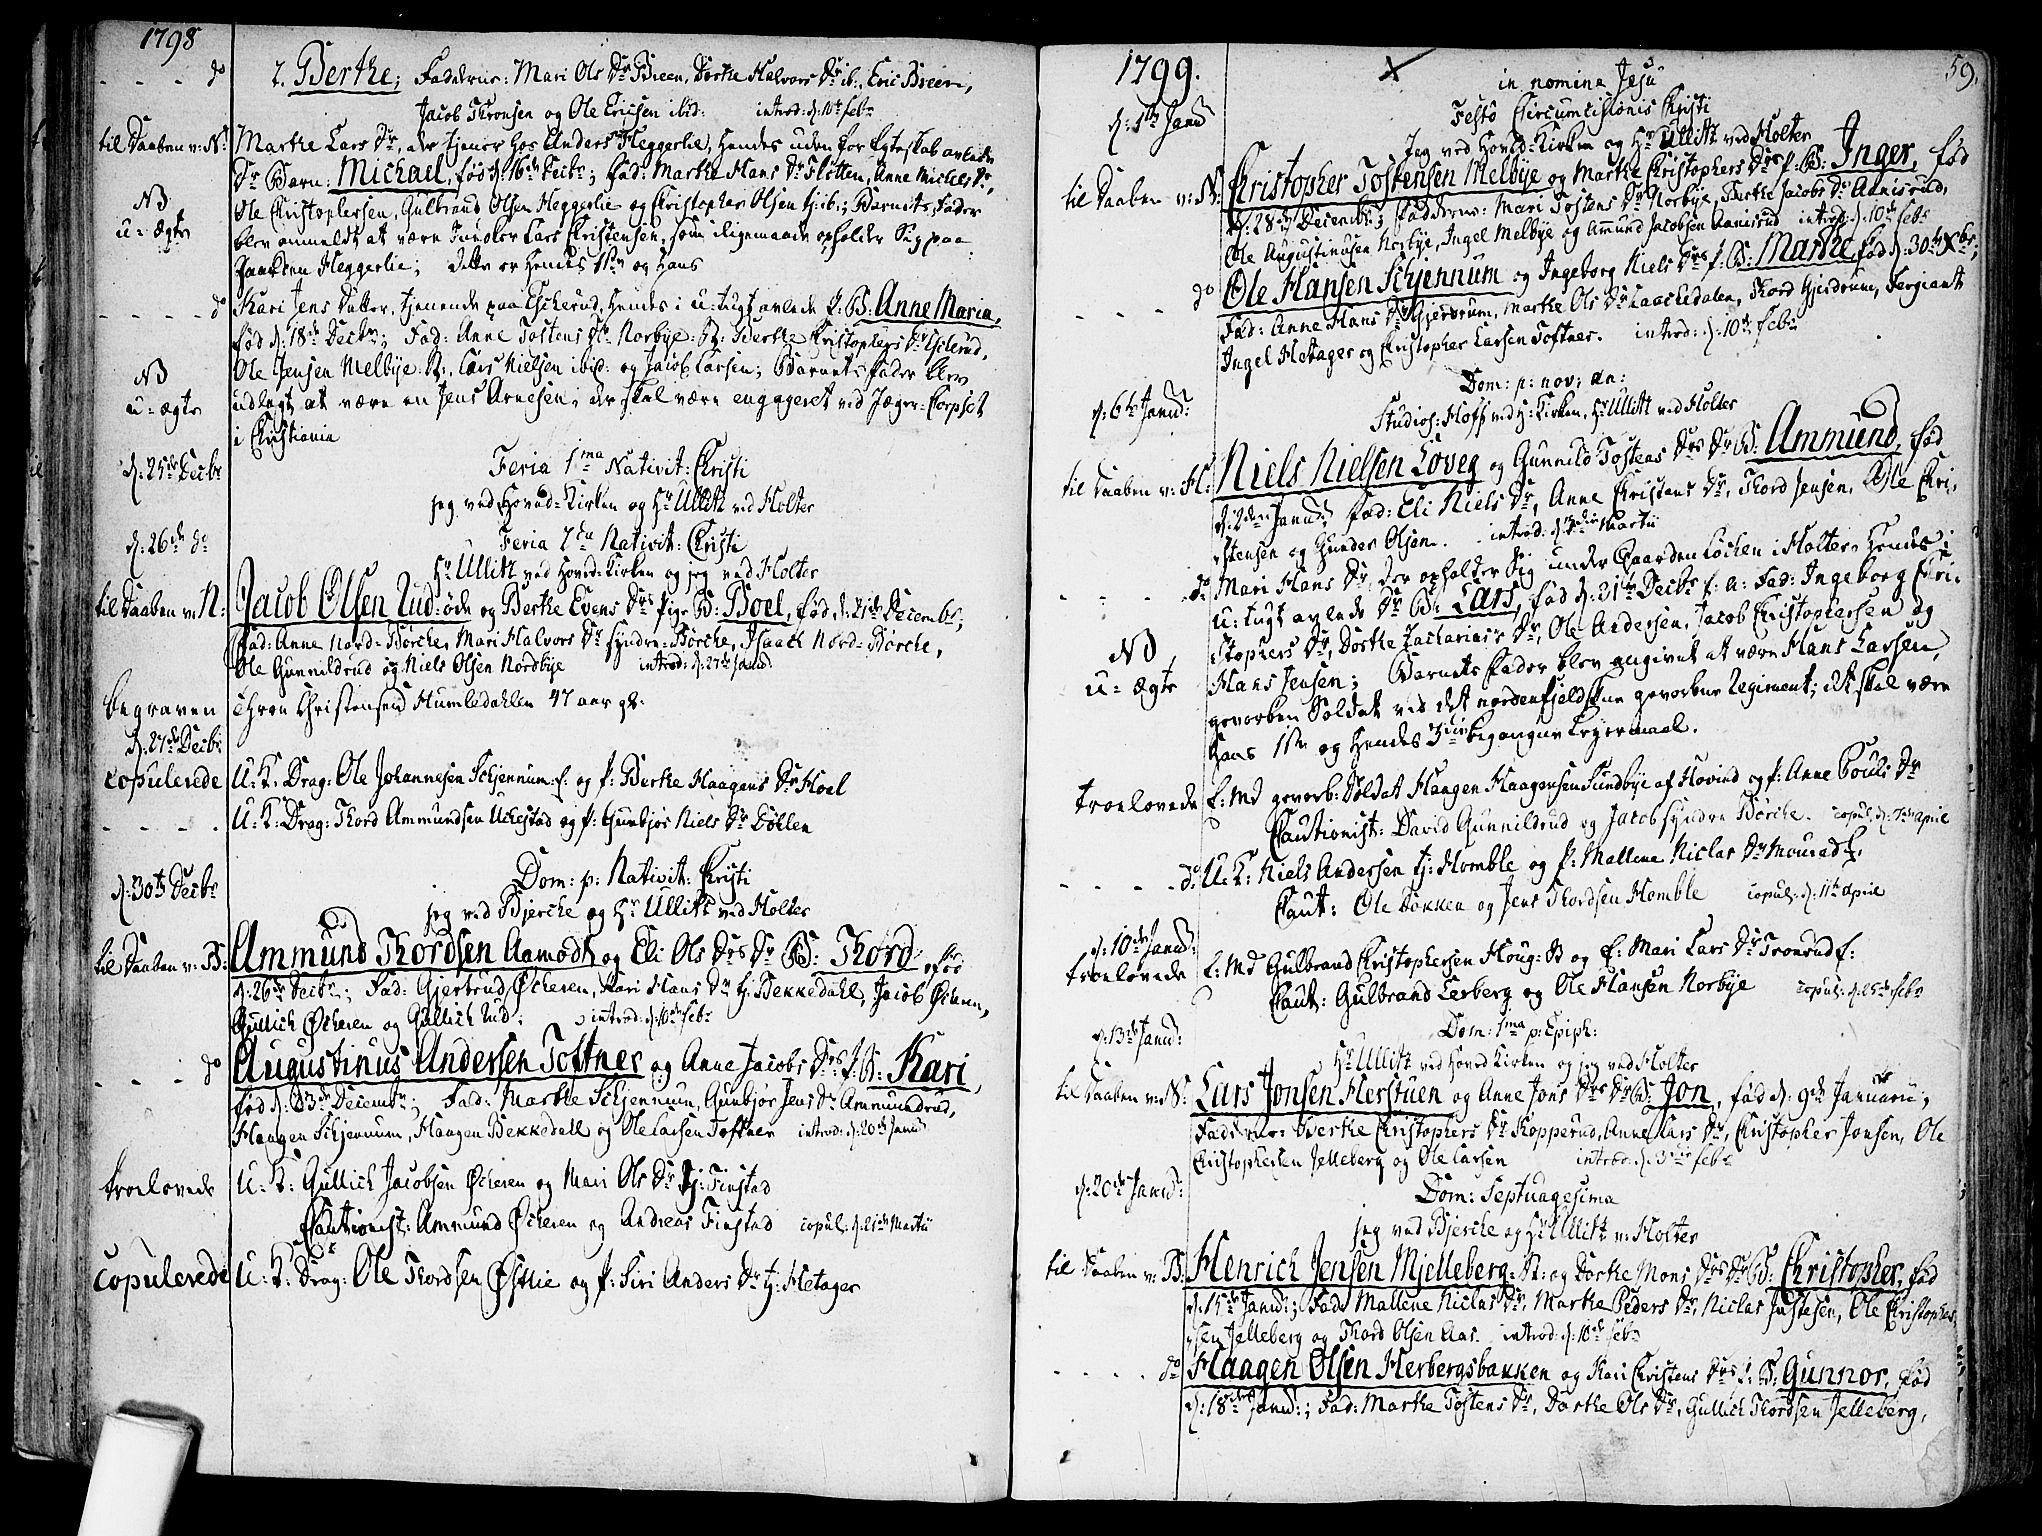 1798
do 2. Berthe; Faddrne: Mari Ols Dr Breen, Dorthe Halvors Dr ib., Eric Breen,
Jacob Thronsen og Ole Ericsen ibid: introd: d: 10de Febr
til Daaben v: N: Marthe Lars Dr, der tjener hos Anders Heggerlie, hendes uden for Egteskab avlede
Dr Barn: Michael, fød d: 16de Decbr; Fad: Marthe Hans Dr Flotten, Anne Michels Dr,
NB Ole Christophersen, Gulbrand Olsen Heggerlie og Christopher Olsen tj: ib:; Barnets Fader
u-ægte blev anmeldt at være Lars Christensen, som iligemaade opholder sig paa
Heggerlie; dette er hendes 1ste og hans
do Kari Jens Datter, tjenende paa Tscherud, hendes i u-tugt avlede P: B: Anne Maria,
fød d: 18de Decbr; Fad: Anne Tostens Dr Norbye, Berthe Christophers Dr
NB Ole Jensen Melbye, Lars Nielsen ibid: og Jacob Larsen; Barnets Fader blev
u-ægte udlagt at være en Jens Arnesen, der skal være engageret ved Jæger-Corpset
i Christiania
d: 25de Decbr Feria 1ma Nativit: Christi
jeg ved Hoved-Kirken og Hr Ullitz ved Holter
d: 26de do Feria 2da Nativit: Christi
Hr Ullitz ved Hoved-Kirken og jeg ved Holter
til Daaben v: N: Jacob Olsen Rud-øde og Berthe Evens Drs Pige B: Boel, fød d: 21de Decembr;
Fad: Anne Nord-Børche, Mari Halvors Dr Syndre-Børche, Isaach Nord-Børche,
Ole Gunnildrud og Niels Olsen Nordbye introd: d: 27de Janu
begraven Thron Christensen Humledahlen 47 aar gl:
d: 27de Decbr
copulerede U: K: Drag: Ole Johannesen Schjennum: f: og P: Berthe Haagens Dr Hoel
U: K: Drag: Thord Ammundsen Uchestad og P: Gunbjør Niels Dr Døhlen
d: 30te Decbr Dom: p: Nativit: Christi
jeg ved Bjerche og Hr Ullitz ved Holter
til Daaben v: B: Ammund Thordsen Aamodt og Eli Ols Drs Dr B: Thord, fød
d: 26de Decbr; Fad: Gjertrud Ocheren, Kari Hans Dr tj: Bekkedahl, Jacob Ocheren,
Gullich Ocheren og Gullich Rud; introd: d: 10de Febr
do Augustinus Andersen Toftner og Anne Jacobs Drs P: B: Kari,
fød d: 23de Decembr; Fad: Marthe Schjennum, Gunbjør Jens Dr Ammundrud,
Haagen Schjennum, Haagen Bekkedall og Ole Larsen Toftner introd: d: 20de Janu
troelovede U: K: Gullich Jacobsen Ocheren og Mari Ols Dr tj: Finstad
Cautionist: Ammund Ocheren og Andreas Finstad copul: d: 21de Martii
copulerede U: K: Drag: Ole Thordsen Østlie og P: Siri Anders Dr tj: Hetager
59.
1799. in nomine Jesu
d: 1ste Janu Festo Circumcisionis Christi
Jeg ved Hoved-Kirken og Hr Ullitz ved Holter
til Daaben v: N: Christopher Tostensen Melbye og Marthe Christophers Drs P: B: Inger, fød
d: 28de Decembr; Faddrne: Mari Tostens Dr Norbye, Berthe Jacobs Dr Aamisrud,
Ole Augustinusen Norbye, Ingel Melbye og Amund Jacobsen Aamisrud introd: d: 10de Febr
do Ole Hansen Schjennum og Ingeborg Niels Drs P: B: Marthe, fød d: 30te Xbr;
Fad: Anne Hans Dr Gjerdrum, Marthe Ols Dr Laachedalen, Thord Gjerdrum, Sergiant
Ingel Hetager og Christopher Larsen Toftner. introd: d: 10de Febr
d: 6te Janu: Dom: p: nov: an:
Studios: Hoff ved H: Kirken, Hr Ullitz ved Holter
til Daaben v: H: Niels Nielsen Loveg og Gunnild Tostens Drs Dr B: Ammund, fød
d: 2den Janu; Fad: Eli Niels Dr, Anne Christens Dr, Thord Jensen, Ole Chri-
stensen og Gunder Olsen. introd: d: 3die Martii
do Mari Hans Dr, der opholder sig under Gaarden Lochen i Holter, hendes i
u-tugt avlede Dr B: Lars, fød d: 31te Decbr f: a: Fad: Ingeborg Chri-
NB stophers Dr, Dorthe Zacharias Dr, Ole Andersen, Jacob Christophersen og
u-ægte Hans Jensen; Barnets Fader blev angivet at være Hans Larsen,
gevorben Soldat ved det nordenfjeldske gevorbne Regiment; det skal være
hans 1ste og hendes 3die begangne Leyermaal.
troelovede E: Md gevorb: Soldat Haagen Haagensen Sundbye af Hovind og P: Anne Pouls Dr
Cautionist: David Gunnildrud og Jacob Syndre Børche. copul: d: 7de April
do U: K: Niels Andersen tj: Homble og P: Mallene Niclas Dr Mourad E.
Caut: Ole Dokken og Jens Thordsen Homble copul: d: 11te April
d: 10de Janu:
troelovede E: Md Gulbrand Christophersen Houg: B og E: Mari Lars Dr Tronrud E:
Caut: Gulbrand Lerberg og Ole Hansen Norbye copul: d: 25de Febr
d: 13de Janu: Dom: 1ma p: Epiph:
Hr Ullitz ved Hoved Kirken og jeg ved Holter
til Daaben v: N: Lars Jonsen Herstuen og Anne Jons Drs Dr B: Jon, fød d: 9de Januarii;
Faddrne: Berthe Christophers Dr Kopperud, Anne Lars Dr, Christopher Jonsen, Ole
Christophersen Jelleberg og Ole Larsen introd: d: 3die Febr
d: 20de Janu: Dom: Septuagesima
jeg ved Bjerche og Hr Ullitz v: Holter
til Daaben v: B: Henrich Jensen Mjelleberg og Dorthe Mons Drs Dr B: Christopher, fød
d: 15de Janu:; Fad: Mallene Niclas Dr, Marthe Peders Dr, Niclas Justesen, Ole Christopher-
sen Jelleberg og Thord Olsen Aas. introd: d: 10de Febr
do Haagen Olsen Herbergsbakken og Kari Christens Drs P: B: Gunnor, fød
d: 18de Janu:; Fad: Marthe Tostens Dr, Dorthe Ols Dr, Gullich Thordsen Jelleberg,